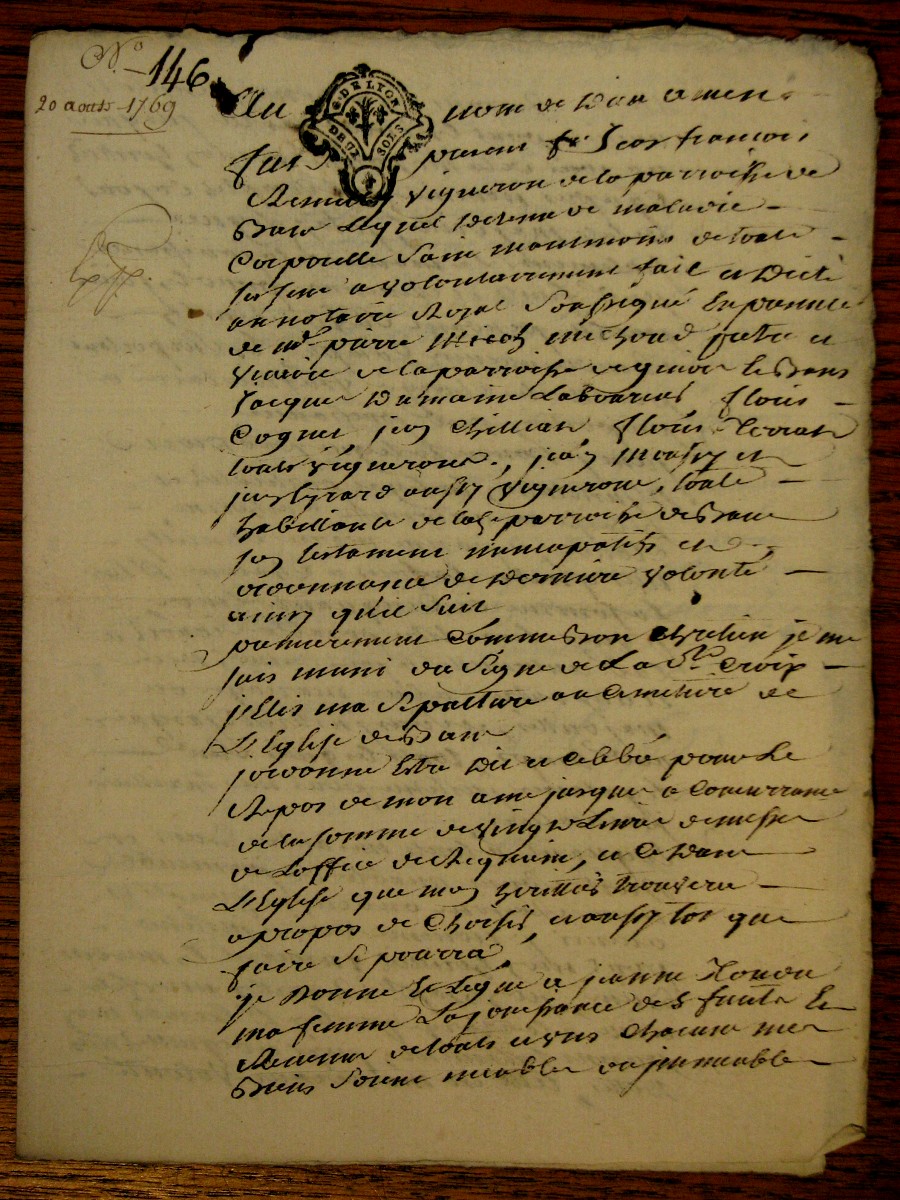 N.o 146
20 aoust 1769
G. DE LYON
DEUX SOLS
Au nom de Dieu amen
fut present Sr Jean françois
vigneron de la parroisse de
Lequel detenu de maladie
Corporelle Sain neantmoins de touts
ses sens a volontairement fait et Dicté
au notaire Royal Soussigné En presence
de mre pierre michond pretre et
vicaire de la parroisse de
Jacques Dumaine Laboureur, flouis
Cognet, jean Chillian, flouis
touts vignerons, jean et
aussy vignerons, touts
habittants de lad. parroisse de
son testament nuncupatif et
ordonnance de Derniere volonté
ainsy qu'il Suit
premierement Comme Bon Chretien je me
suis muni du Signe de La Ste Croix
j'Elis ma Sepulture au Cimetiere de
L'Eglise de
jordonne Estre Dit et Celebré pour Le
Repos de mon ame jusques a Concurrance
de la somme de vingt Livres de messes
de L'office de Requiem, et Ce Dans
L'Eglise que mon heritier trouvera
a propos de Choisir, et aussy tot que
faire Se pourra,
je Donne Et Legue a jeanne
ma femme La jouissance des fruits Et
Revenus de touts et uns Chacuns mes
Biens Soient meubles ou jmmeubles